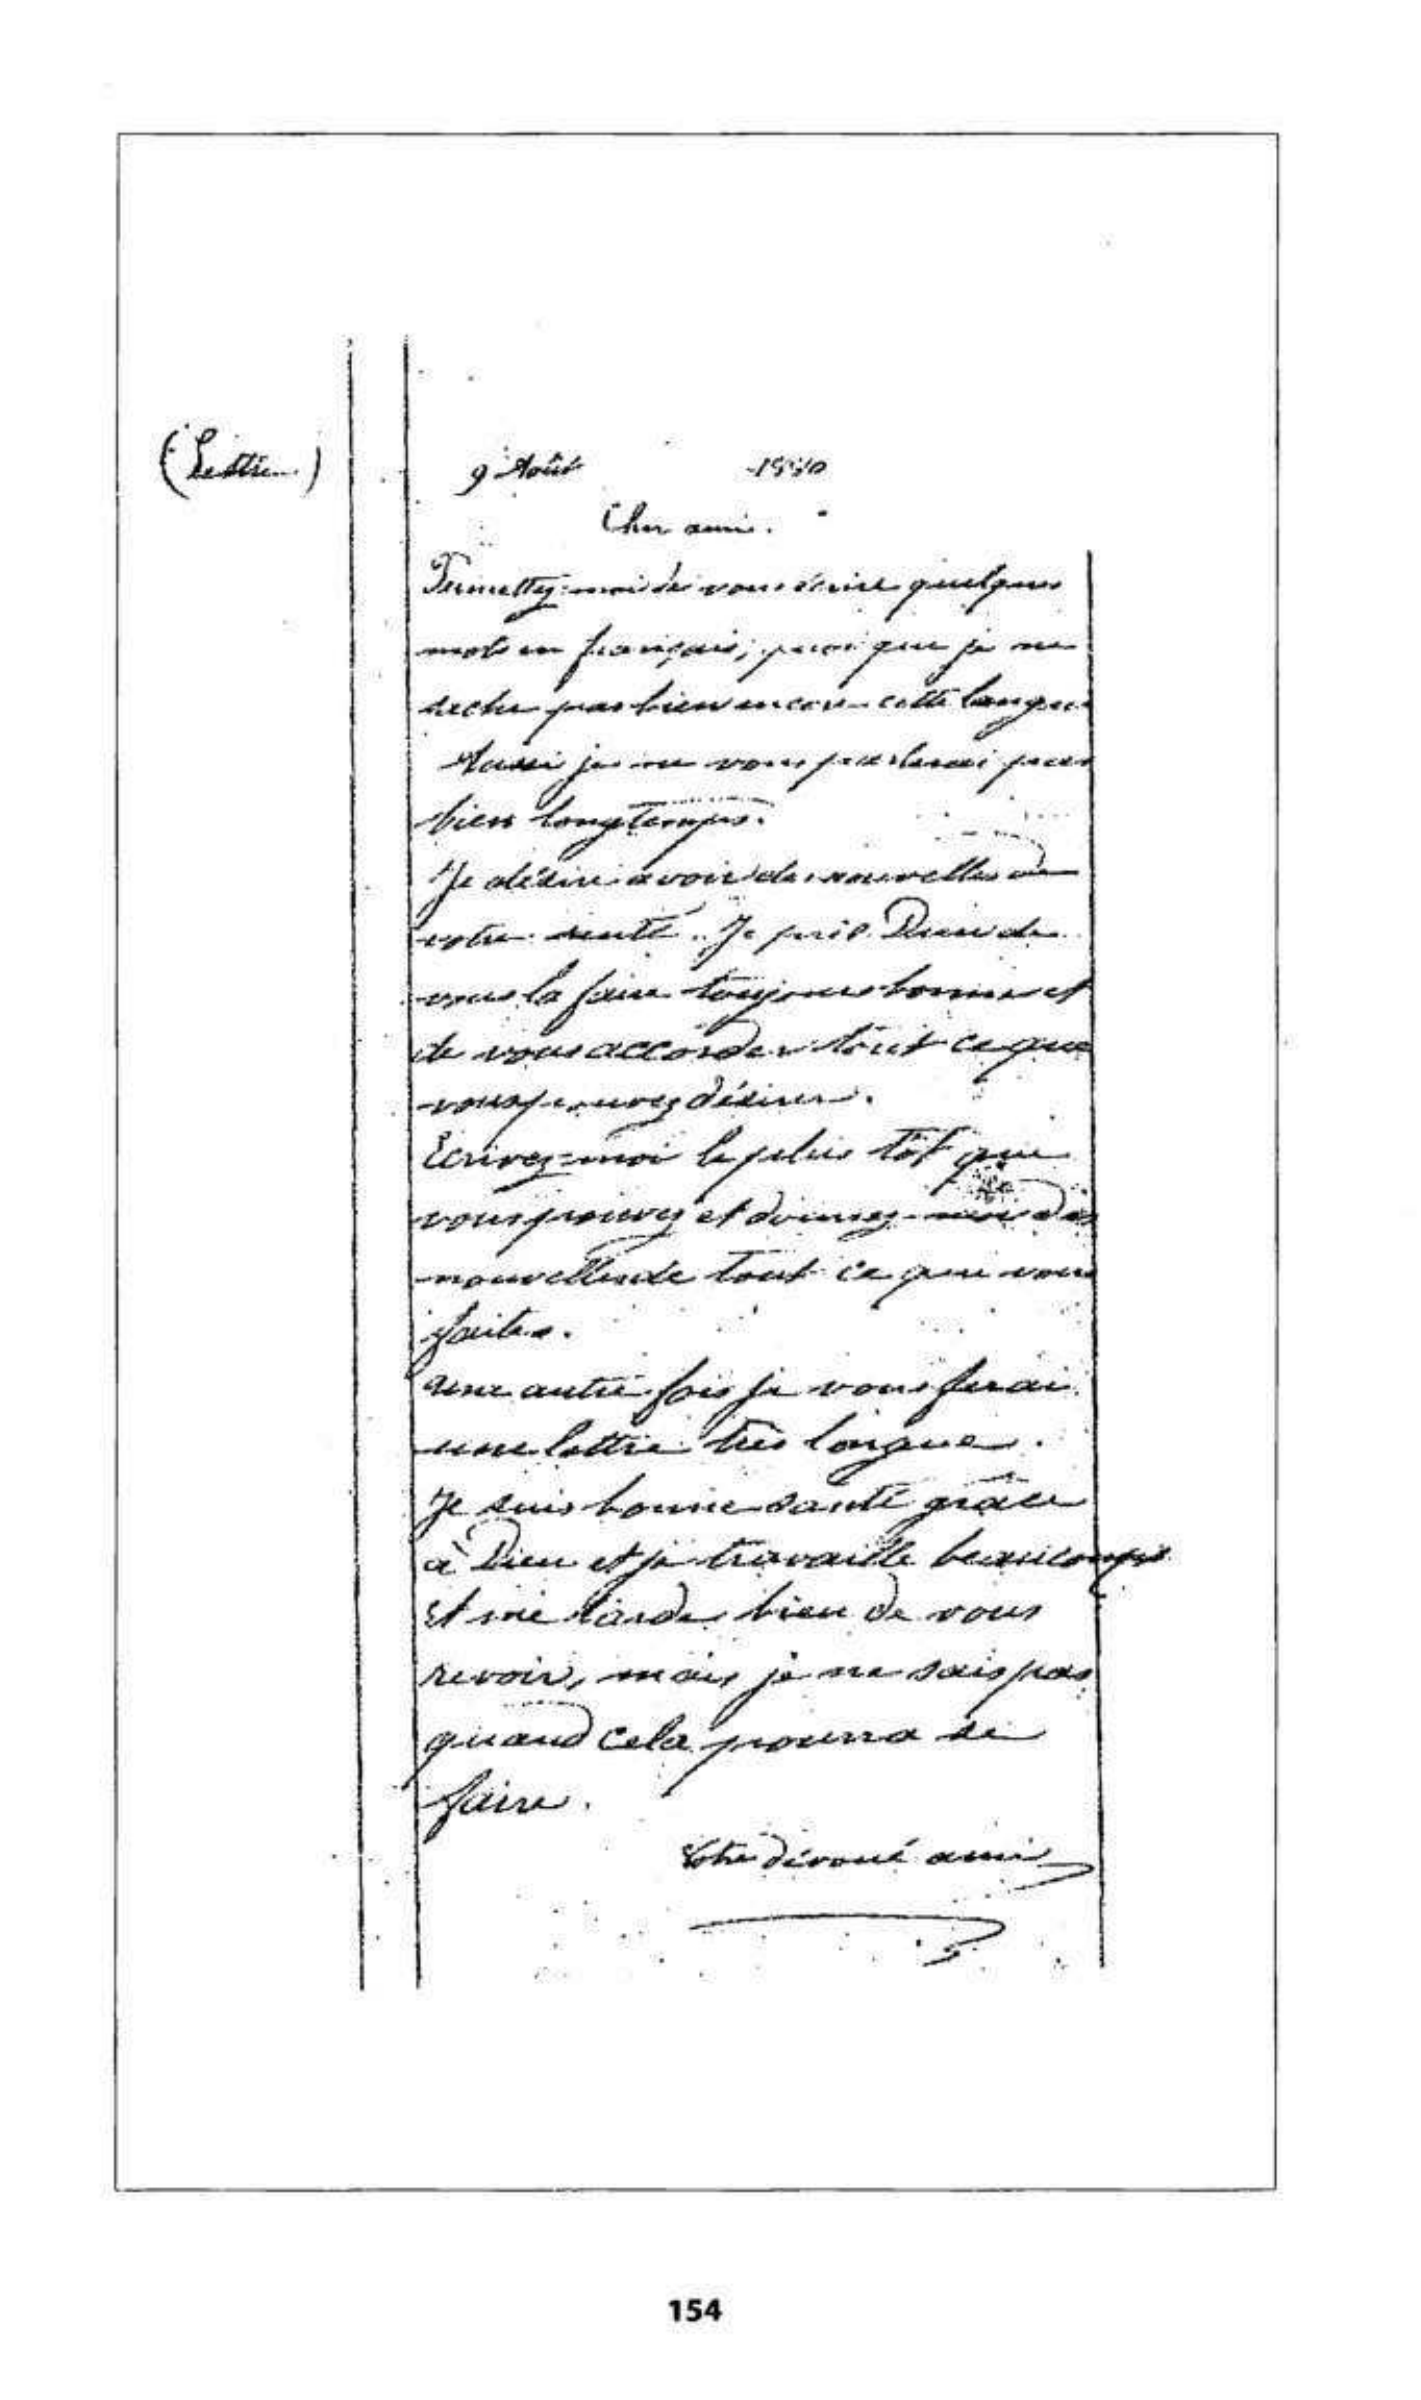 (Lettre)
9 Août
Cher ami.
Permettez-moi de vous écrire quelques
mots en français, quoi que je ne
sache pas bien encore cette langue
Aussi je ne vous parlerai pas
bien longtemps.
Je désire avoir des nouvelles de
votre santé. Je prie Dieu de
vous la faire toujours bonne et
de vous accorder tout ce que
vous pouvez désirer.
Ecrivez-moi le plus tôt que
vous pouvez et donnez-moi des
nouvelles de tout ce que vous
faites.
une autre fois je vous ferai
une lettre très longue.
Je suis bonne santé grâce
à Dieu et je travaille beaucoup
et me tarde bien de vous
revoir, mais je ne sais pas
quand cela pourra se
faire.
Votre dévoué ami
154